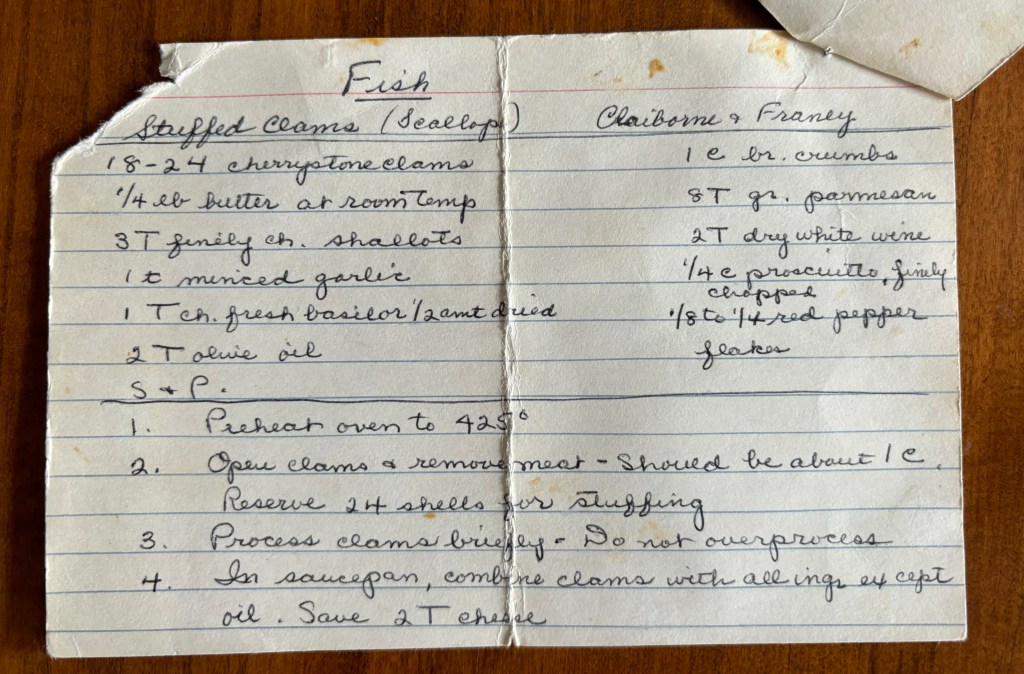 Fish
Stuffed Clams (Scallop)
Claiborne & Franey
18-24 cherrystone clams
1/4 lb butter at room temp
3T finely ch. shallots
1 t minced garlic
1 T ch. fresh basil or 1/2 amt dried
2 T olive oil
S & P.
1 c br. crumbs
8T gr. parmesan
2T dry white wine
1/4 c proscuitto, finely
chopped
1/8 to 1/4 red pepper
flakes
1. Preheat oven to 425°
2. Open clams & remove meat - Should be about 1 c.
Reserve 24 shells for stuffing
3. Process clams briefly - Do not overprocess
4. In saucepan, combine clams with all ing, except
oil. Save 2 T cheese